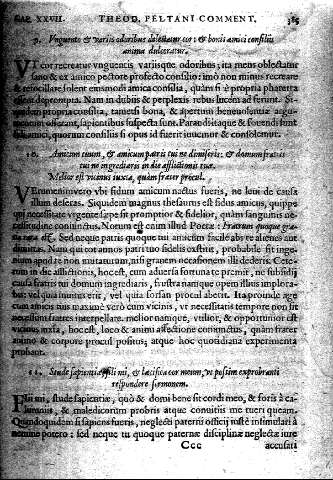 CAP. XXVII. THEOD. PELTANI COMMENT. 385
9. Vnguento & variis odoribus delectatur cor: & bonis amici consiliis
anima dulcoratur.
VT cor recreatur vnguentis variisque odoribus; ita mens oblectatur
sano & ex amico pectore profecto consilio: imò non minus recreare
& refocillare solent eiusmodi amica consilia, quàm si è propria pharetra
essent deprompta. Nam in dubiis & perplexis rebus lucem adferunt. Si-
quidem propria consilia, tametsi bona, & apertum beneuolentiæ argu-
mentum suspecta sunt.
amici, quorum consiliis si opus id fuerit iuuemur & consolemur.
10. Amicum tuum, & amicum patris tui ne dimiseris: & domum fratris
tui ne ingrediaris in die afflictionis tuæ.
Melior est vicinus iuxta, quàm frater procul.
VErumenimvero vbi fidum amicum nactus fueris, ne leui de causa
illum deseras. Siquidem magnus thesaurus est fidus amicus, quippe
qui necessitate vrgente sæpe sit promptior & fidelior, quàm sanguinis ne-
cessitudine coniunctus. Notum est enim illud Poëtæ: Fratrum quoque gra-
tia rara est. Sed neque patris quoque tui amicum facilè abs te alienes aut
dimittas. Nam qui tot annos patri tuo fidelis exstitit, probabile sit inge-
nium apud te non mutaturum, nisi grauem occasionem illi dederis. Cete-
rùm in die afflictionis, hoc est, cum aduersa fortuna te premit, ne subsidij
causa fratris tui domum ingrediaris, frustra namque opem illius implora-
bis: vel quia inuitus erit, vel quia forsan procul aberit. Ita proinde age
cum amicis tuis maximè verò cum vicinis, vt necessitatis tempore non sit
necessum fratres interpellare. melior namque, vtilior, & opportunior est
vicinus iuxta, hoc est, loco & animi affectione coniunctus, quàm frater
animo & corpore procul positus; atque hoc quotidiana experimenta
probant.
11. Stude sapientiæ fili mi, & lætifica cor meum, vt possim exprobranti
respondere sermonem.
FIli mi, stude sapientiæ, quò & domi bene sit cordi meo, & foris à ca-
lumniis, & maledicorum probris atque conuitiis me tueri queam.
Quandoquidem si sapiens fueris, neglecti paterni officij iustè insimulari à
nemine potero: sed neque tu quoque paternæ disciplinæ neglectæ iure
Ccc accusari